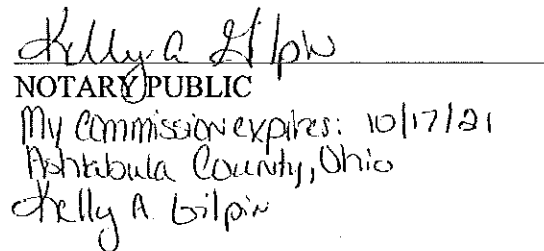 Kelly A Gilpin
NOTARY PUBLIC
My Commission expires: 10/17/21
Ashtabula County, Ohio
Kelly A Gilpin